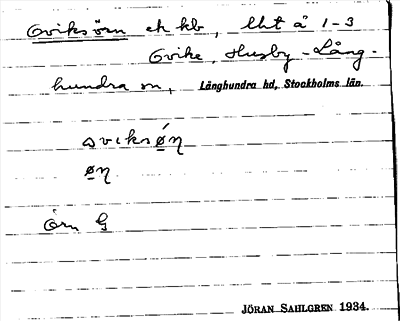 Gviksörn ek kb, lht å 1-3
Gvike, Husby-Lång-
hundra sn, Långhundra hd, Stockholms län.
ɷviksǿɳ
øɳ
örn G
JÖRAN SAHLGREN 1934.